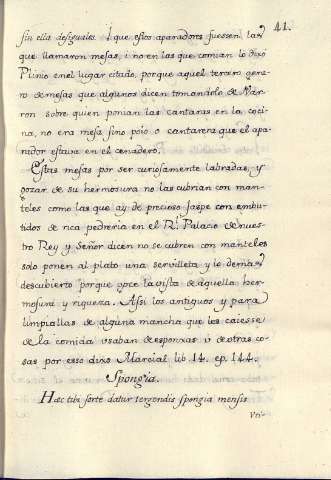 41.
sin ella desiguales. I que estos aparadores fuessen las
que llamaron mesas, i no en las que comian lo dixo
Plinio en el lugar citado, porque aquel tercero gene-
ro de mesas que algunos dicen tomandolo de Var-
ron sobre quien ponian las cantaras en la coci-
na, no era mesa sino poio o cantarera que el apa-
rador estava en el cenadero.
Estas mesas por ser curiosamente labradas, y
gozar de su hermosura no las cubrian con man-
teles como las que ay de precioso jaspe con embu-
tidos de rica pedreria en el Rl. Palacio de nues-
tro Rey y Señor dicen no se cubren con manteles
solo ponen al plato una servilleta y lo demas
descubierto porque goce la vista de aquella her-
mosura y riqueza. Assi los antiguos y para
limpiallas de alguna mancha que les caiesse
de la comida usaban de esponxas ú de otras co-
sas por esso dixo Marcial lib. 14. ep. 144.
Spongia.
Hæc tibi sorte datur tergendis spongia mensis
Vti-